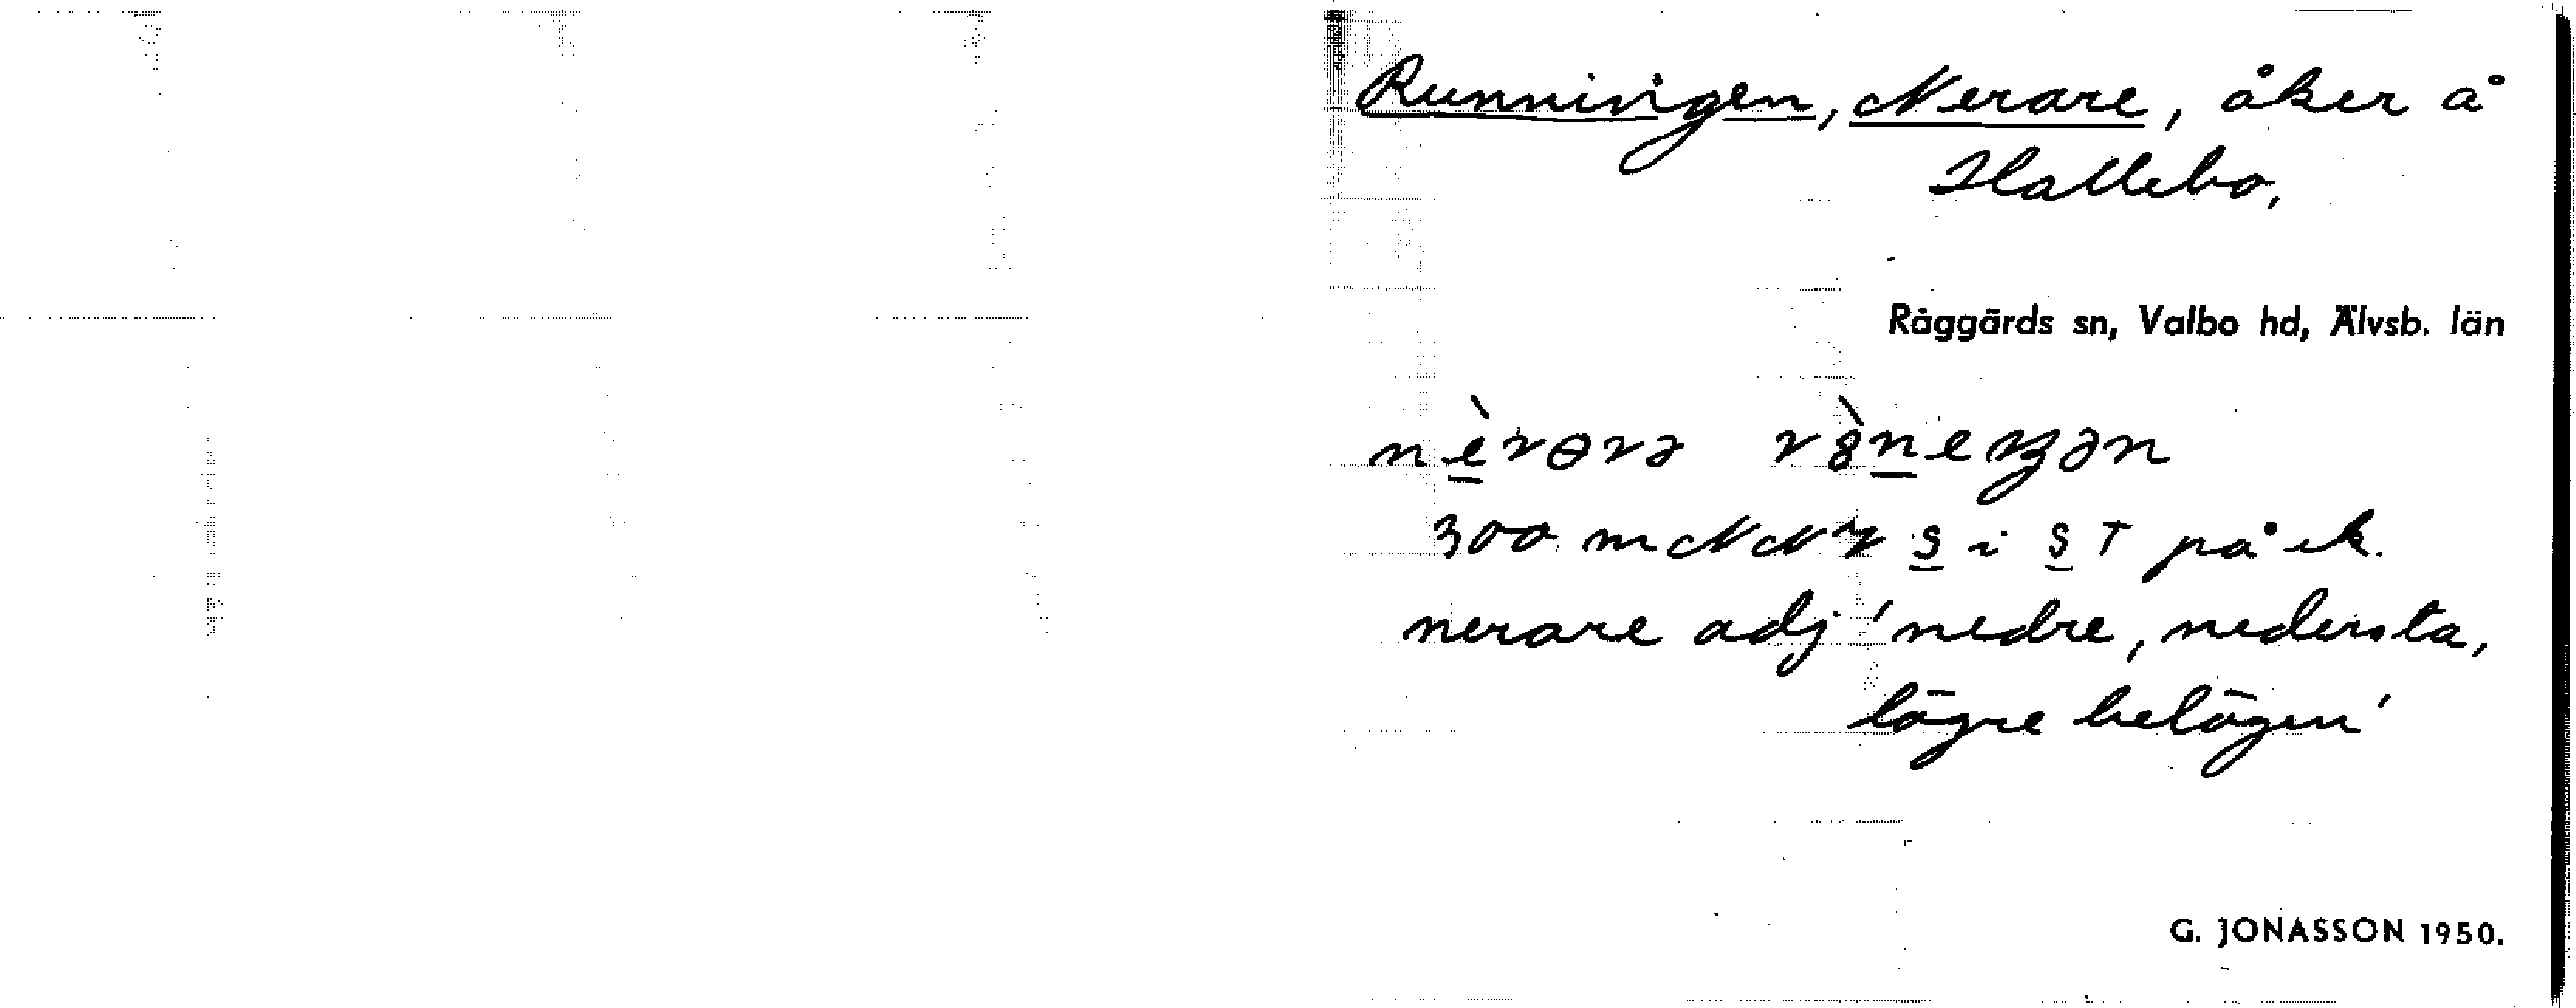 Runningen, Nerare, åker å
Hallebo,
Råggärds sn, Valbo hd, Älvsb. län
nèrɵrə rȍneŋən
300 m NNV S i ST på ek.
nerare adj 'nedre, nedersta,
lägre belägen'
G. JONASSON 1950.